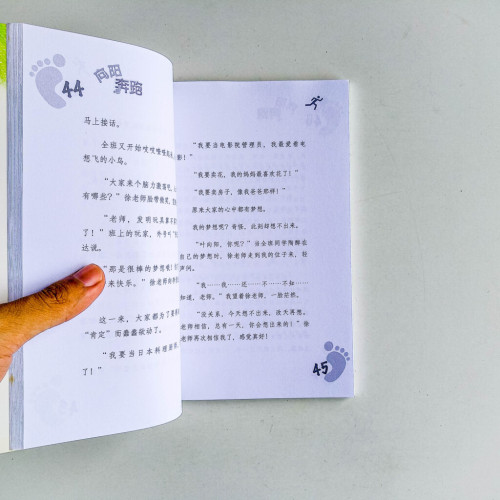 44
向阳
奔跑
马上接话。
全班又开始吱吱喳喳
想飞的小鸟。
“大家来个脑力激荡吧，
有哪些？”徐老师脸带微笑，
“老师，发明玩具算不
了！”班上的玩家，外号叫
达说。
“那是很棒的梦想哦！
来快乐。”徐老师
这一来，大家都为了
“肯定”而蠢蠢欲动了。
“我要当日本料理
了！”
“我要当电影院管理员，我最爱看电
影！”
“我要卖花，我的妈妈最喜欢花了！”
“我要卖房子，像我爸爸那样！”
原来大家的心中都有梦想。
我的梦想呢？奇怪，此刻却想不出来。
“叶向阳，你呢？”当全班同学陶醉在
自己的梦想时，徐老师走到我的位子来，轻
声问。
“我……我……还……不……不知……
知道，老师。”我望着徐老师，一脸茫然。
“没关系，今天想不出来，改天再想。
老师相信，总有一天，你会想出来的！”徐
老师再次相信我了，感觉真好！
45